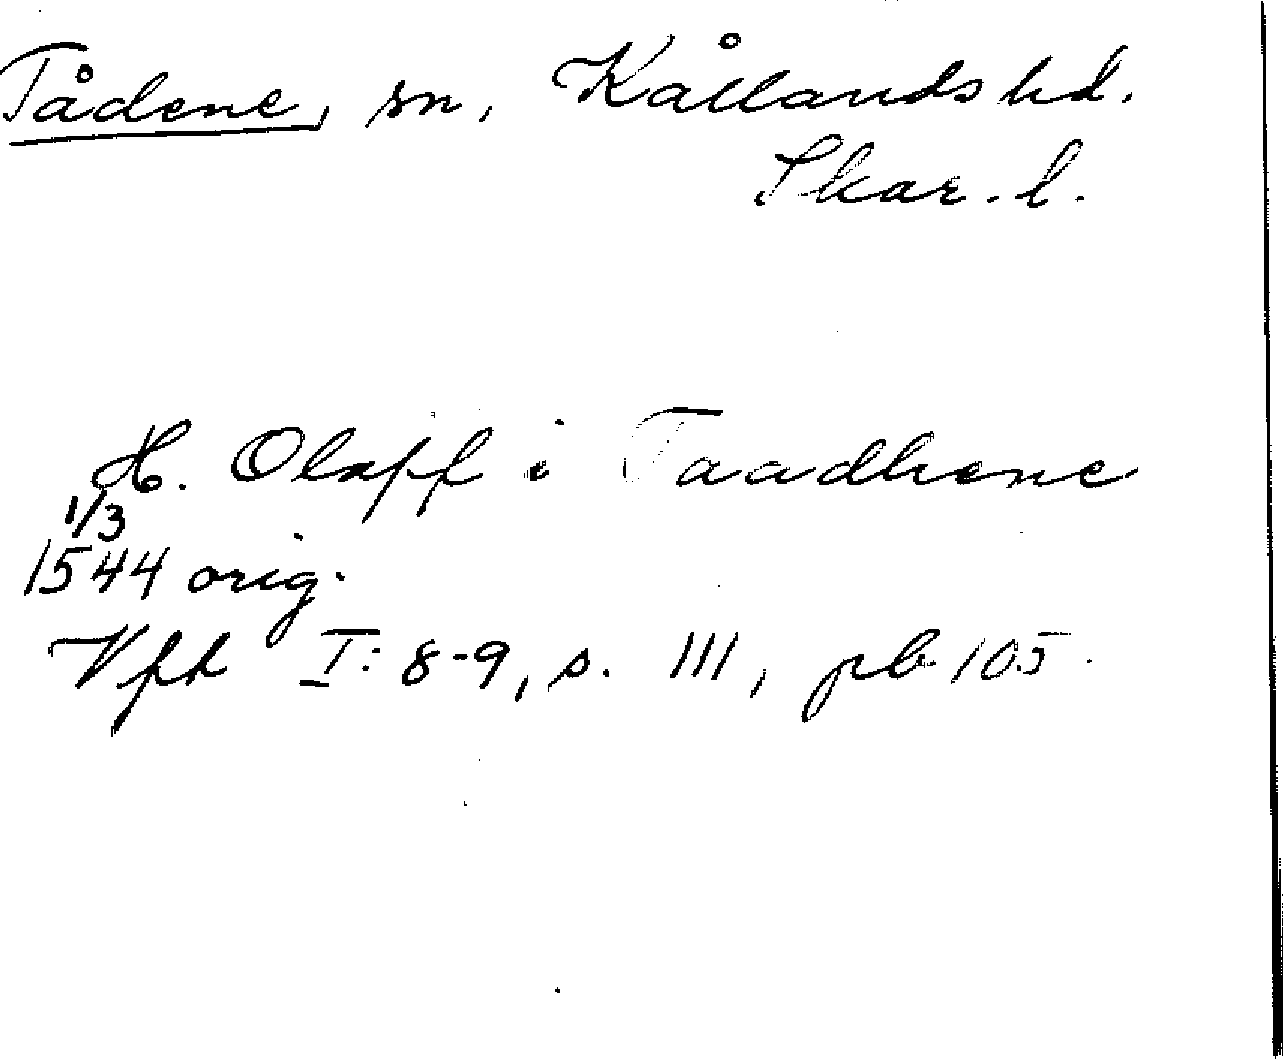 Tådene, sn, Kållands hd.
Skar. l.
H. Olaff i Taadhene
1/3
1544 orig.
Vfh I: 8-9, s. 111, pb 105.